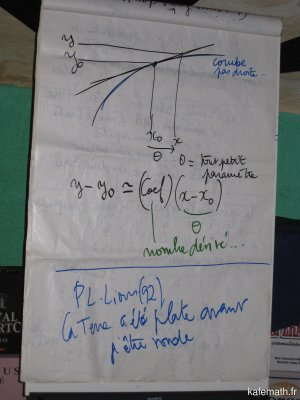 y
y₀
courbe
pas droite.
x₀ x
θ
θ = tout petit
paramètre
y - y₀ ≃ (coef) (x - x₀)
θ
nombre dérivé...
P.L. Lions (92)
La Terre a été plate avant
d'être ronde
kafemath.fr